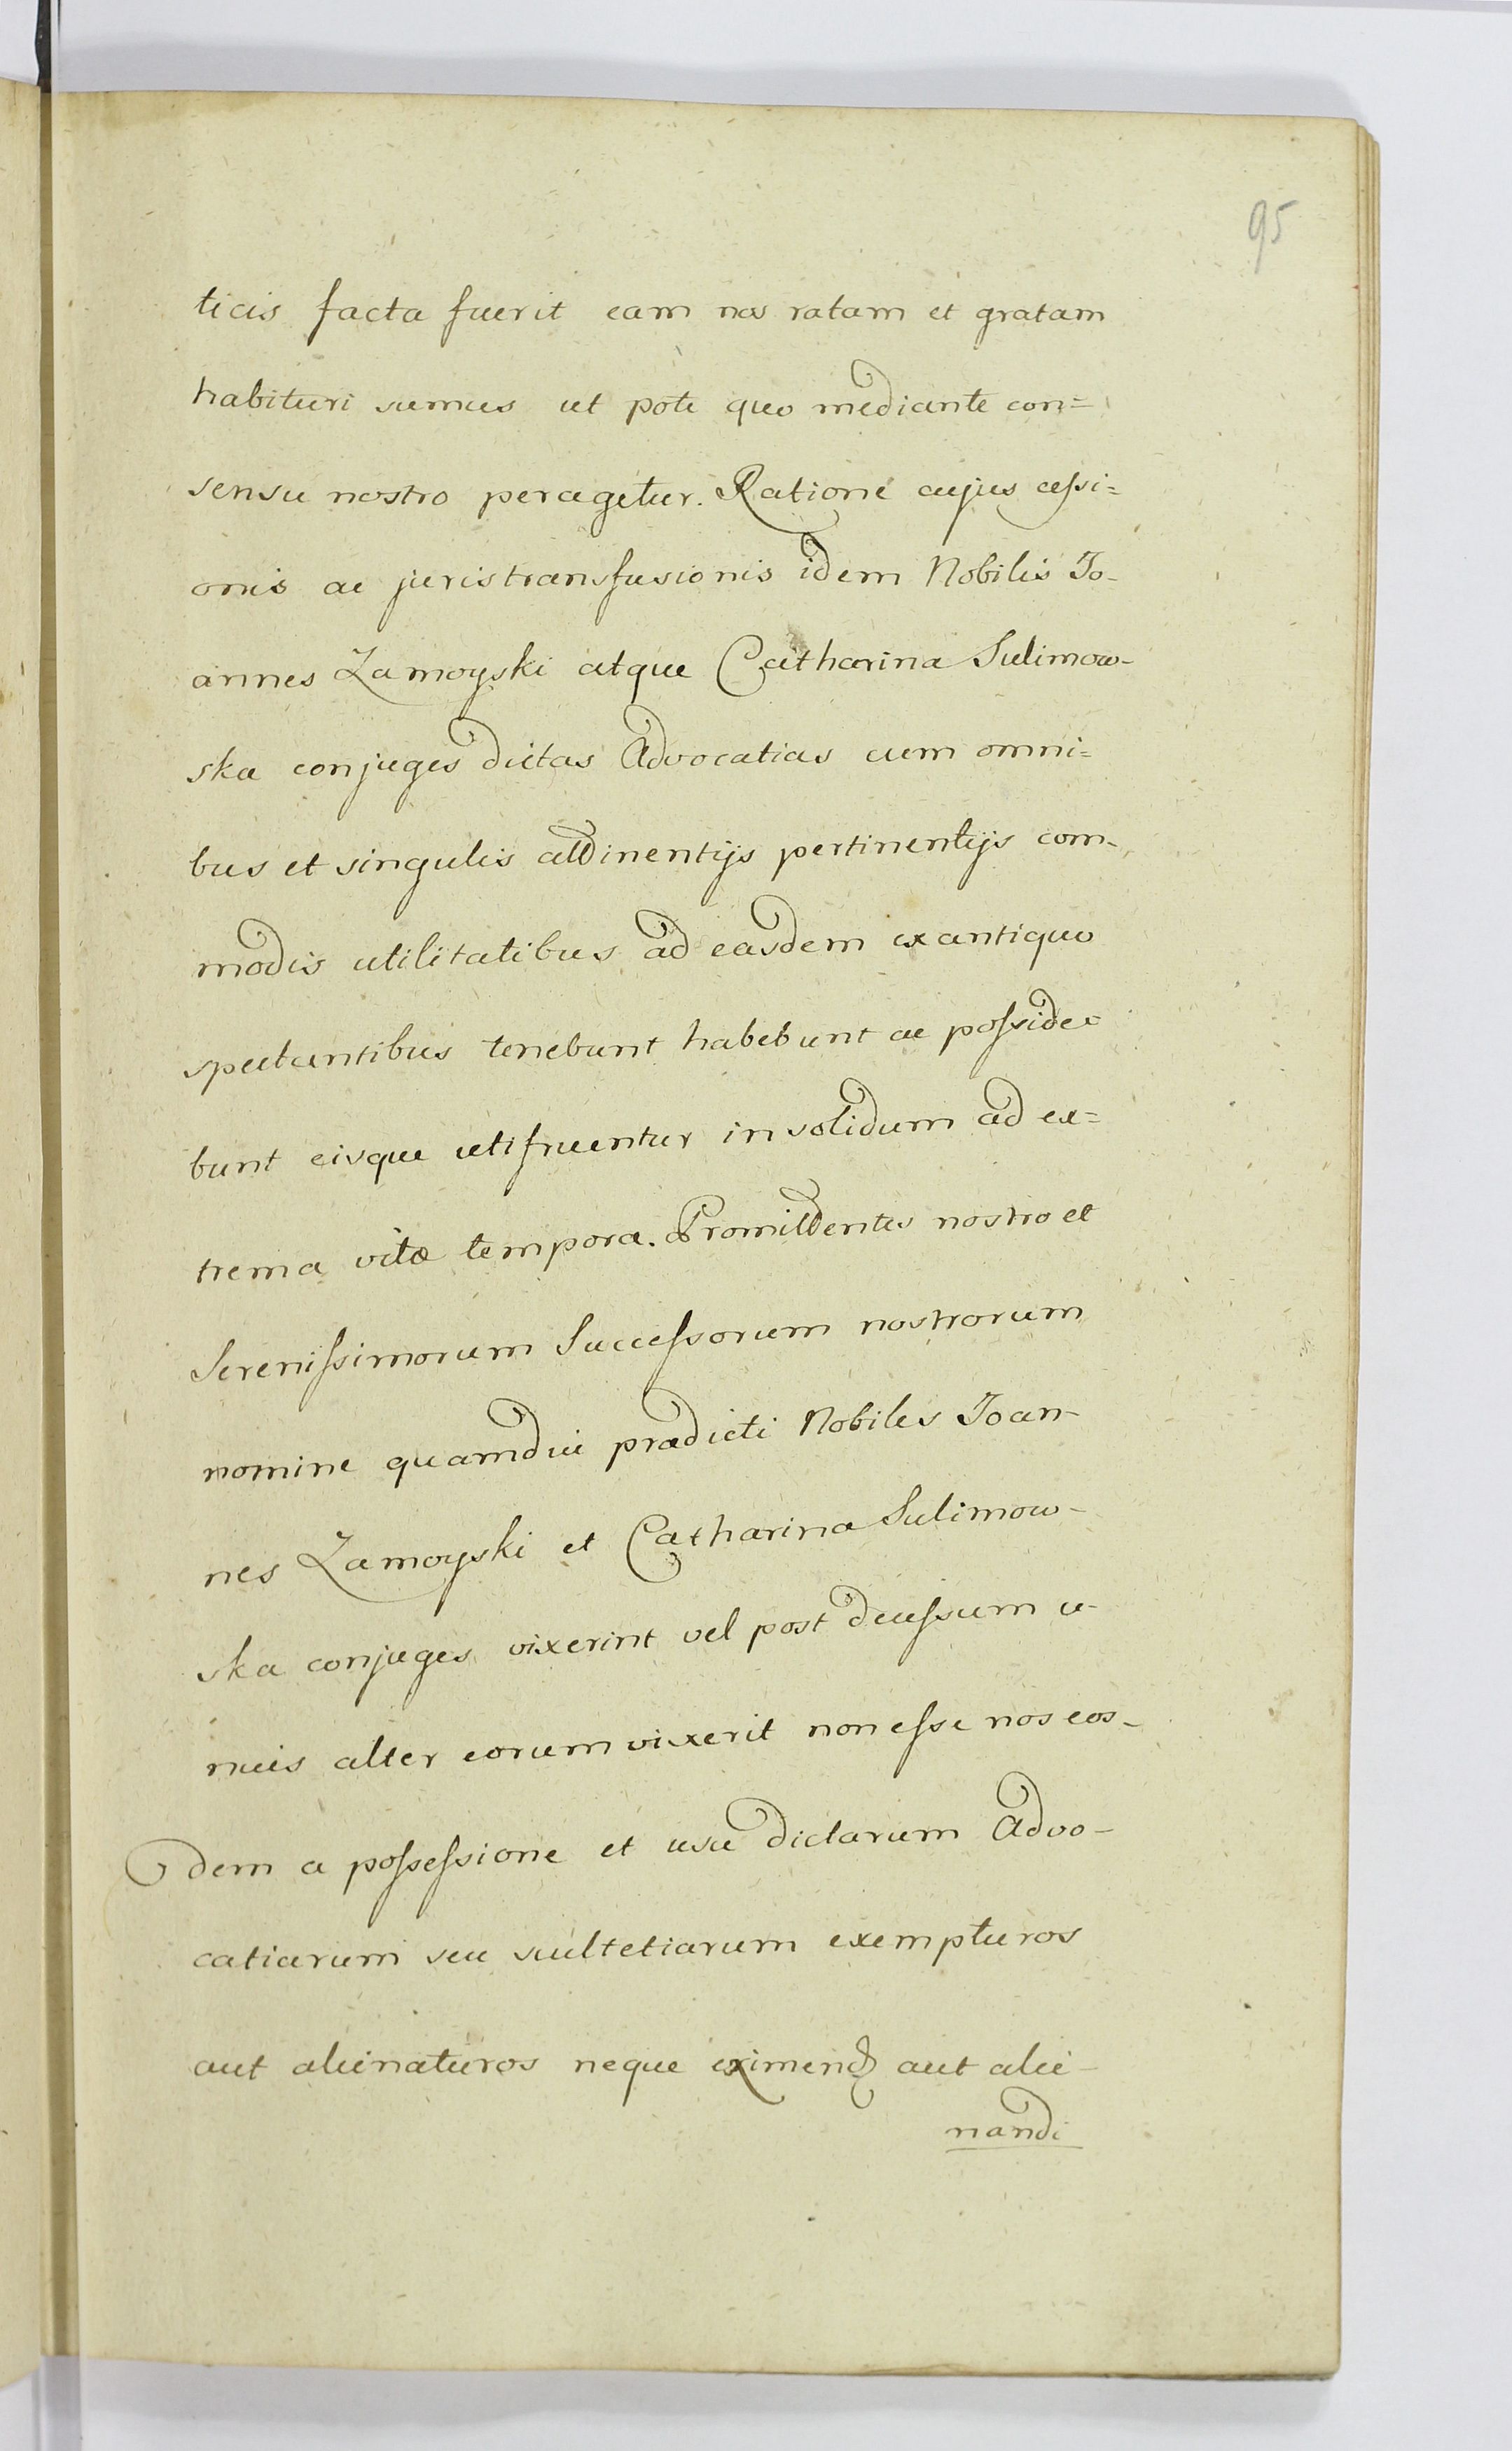 95
ticis facta fuerit eam nos ratam et gratam
habituri sumus ut pote quo mediante con=
sensu nostro peragetur. Ratione cujus cessi=
onis ac juris transfusionis idem Nobilis Jo-
annes Zamoyski atque Catharina Sulimow-
ska conjuges dictas Advocatias cum omni=
bus et singulis attinentijs pertinentijs com-
modis utilitatibus ad easdem ex antiquo
spectantibus tenebunt habebunt ac posside=
bunt eisque utifruentur in solidum ad ex=
trema vitæ tempora. Promittentes nostro et
Serenissimorum Successorum nostrorum
nomine quamdiu prædicti Nobiles Joan-
nes Zamoyski et Catharina Sulimow-
ska conjuges vixerint vel post decessum u-
nius alter eorum vixerit non esse nos eos-
dem a possessione et usu dictarum Advo-
catiarum seu scultetiarum exempturos
aut alienaturos neque eximendi aut alie-
nandi